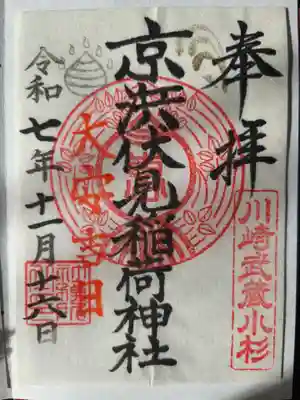 奉拝
川崎武蔵小杉
京浜伏見稲荷神社
大安吉日
令和七年十一月十六日